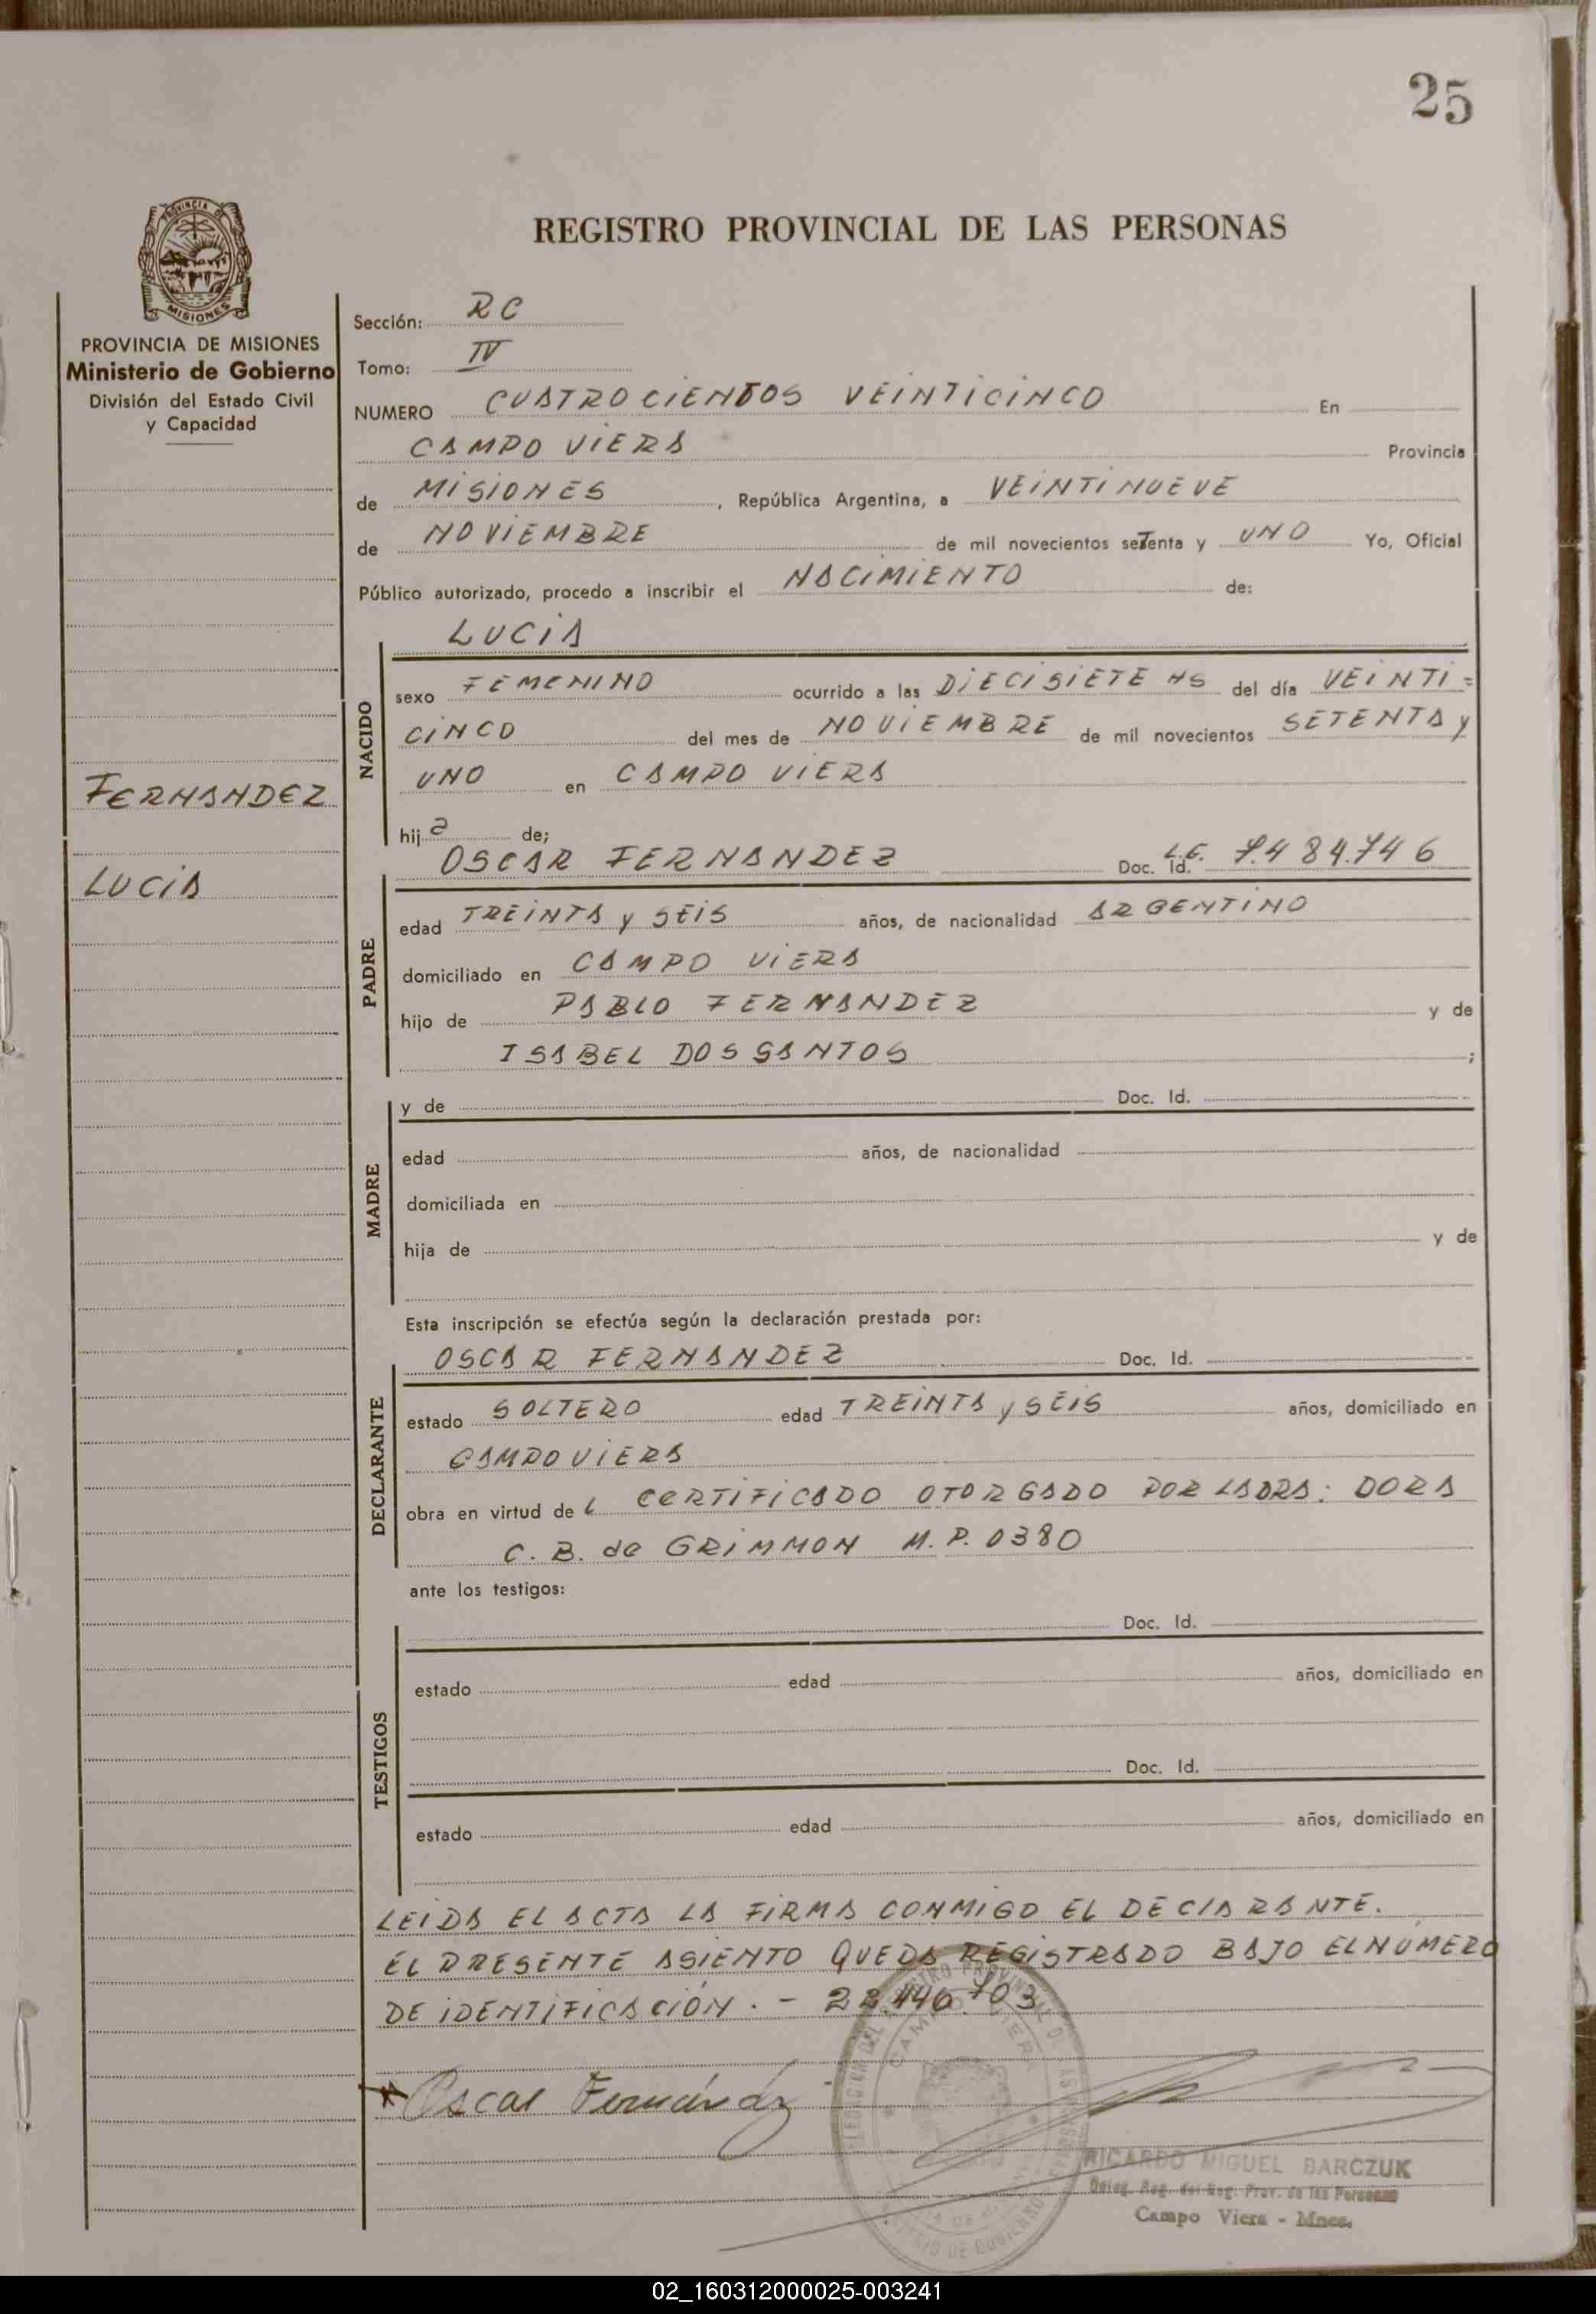 25
PROVINCIA DE
MISIONES
REGISTRO PROVINCIAL DE LAS PERSONAS
PROVINCIA DE MISIONES
Ministerio de Gobierno
División del Estado Civil
y Capacidad
FERNANDEZ
LUCIA
Sección: RC
Tomo: IV
NUMERO CUATROCIENTOS VEINTICINCO En
CAMPO VIERA Provincia
de MISIONES, República Argentina, a VEINTINUEVE
de NOVIEMBRE de mil novecientos seTenta y UNO Yo, Oficial
Público autorizado, procedo a inscribir el NACIMIENTO de:
LUCIA
NACIDO
sexo FEMENINO ocurrido a las DIECISIETE HS del día VEINTI=
CINCO del mes de NOVIEMBRE de mil novecientos SETENTA y
UNO en CAMPO VIERA
hija de;
OSCAR FERNANDEZ Doc. Id. L.E. 7.484.746
PADRE
edad TREINTA y SEIS años, de nacionalidad ARGENTINO
domiciliado en CAMPO VIERA
hijo de PABLO FERNANDEZ y de
ISABEL DOS SANTOS ;
MADRE
y de Doc. Id.
edad años, de nacionalidad
domiciliada en
hija de y de
Esta inscripción se efectúa según la declaración prestada por:
OSCAR FERNANDEZ Doc. Id.
DECLARANTE
estado SOLTERO edad TREINTA y SEIS años, domiciliado en
CAMPO VIERA
obra en virtud de L CERTIFICADO OTORGADO POR LA DRA: DORA
C. B. de GRIMMON M.P. 0380
ante los testigos:
Doc. Id.
TESTIGOS
estado edad años, domiciliado en
Doc. Id.
estado edad años, domiciliado en
LEIDA EL ACTA LA FIRMA CONMIGO EL DECLARANTE.
EL PRESENTE ASIENTO QUEDA REGISTRADO BAJO EL NÚMERO
DE IDENTIFICACIÓN. - 22.446.703
Oscar Fernández
RICARDO MIGUEL BARCZUK
Deleg. Reg. del Reg. Prov. de las Personas
Campo Viera - Mnes.
02_160312000025-003241